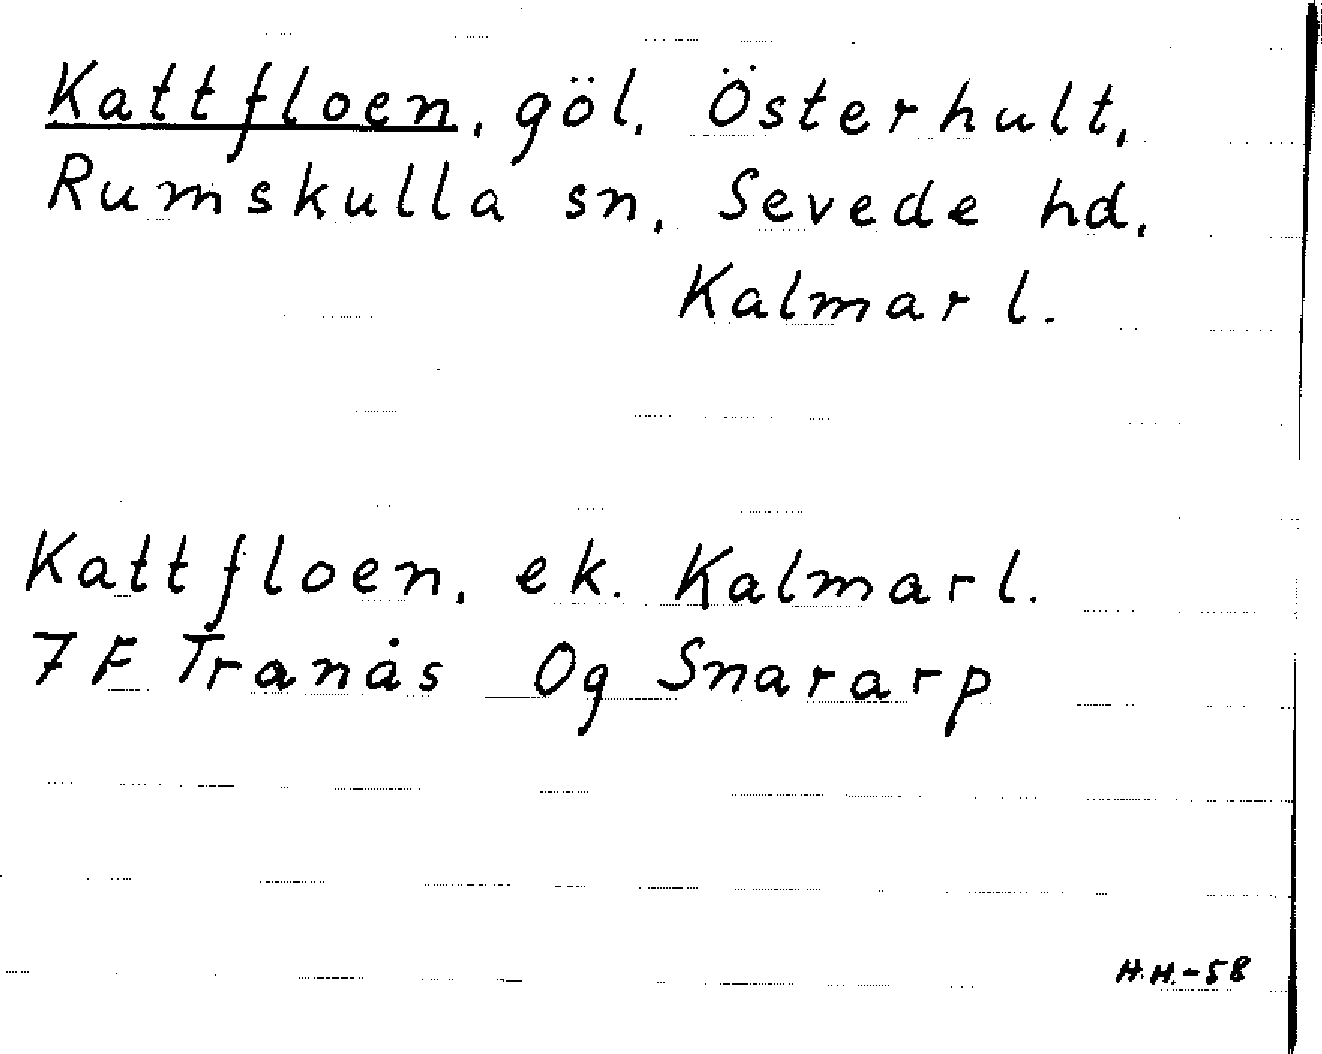 Kattfloen, göl, Österhult,
Rumskulla sn, Sevede hd,
Kalmar l.
Kattfloen, ek. Kalmar l.
7F Tranås Og Snararp
H.H.-58